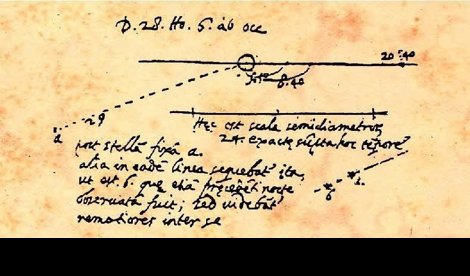 D. 28. Ho. 6. ab occ
20.40
8.40
Hec est scala semidiametror
24. exacte sũpta hoc tẽpore
a
post stellã fixã a.
alia in eadẽ linea sequebat ita,
ut est b. que etiã precedẽti nocte
observata fuit; sed videbãt
remotiores inter se
b a.